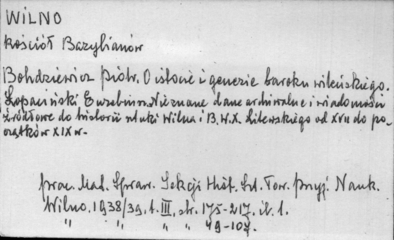 WILNO
Kościół Bazylianów
Bohdziewicz Piotr. O istocie i genezie baroku wileńskiego.
Łopaciński Euzebiusz. Nieznane dane archiwalne i wiadomości
źródłowe do historii sztuki Wilna i B.W.X. Litewskiego od XVII do po-
czątków XIX w.
Prac. Mat. Spraw. Sekcji Hist. Szt. Tow. Przyj. Nauk.
Wilno. 1938/39. t. III. str. 175-217. il. 1.
" " " " 49-107.